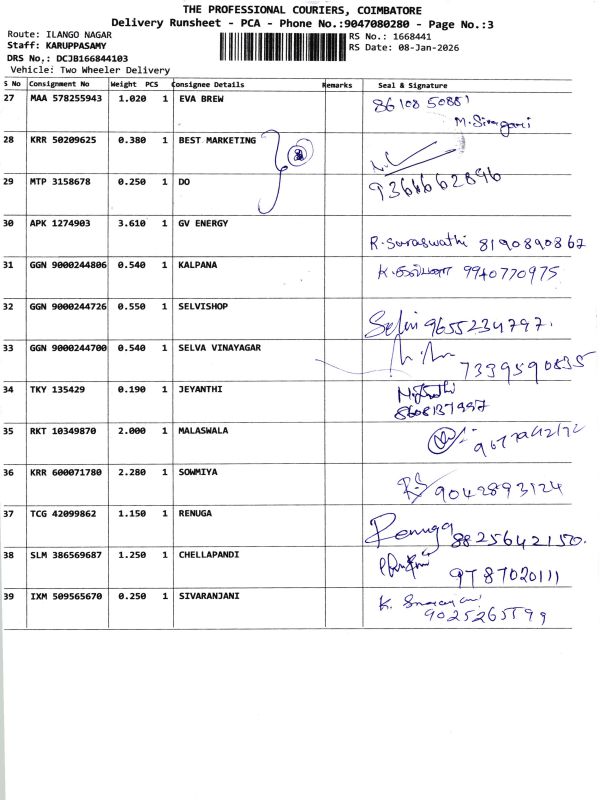 THE PROFESSIONAL COURIERS, COIMBATORE
Delivery Runsheet - PCA - Phone No.:9047080280 - Page No.:3
Route: ILANGO NAGAR
RS No.: 1668441
Staff: KARUPPASAMY
RS Date: 08-Jan-2026
DRS No,: DCJB166844103
Vehicle: Two Wheeler Delivery
S No Consignment No Weight PCS Consignee Details Remarks Seal & Signature
27 MAA 578255943 1.020 1 EVA BREW 8610850881
28 KRR 50209625 0.380 1 BEST MARKETING
29 MTP 3158678 0.250 1 DO 9364662896
30 APK 1274903 3.610 1 GV ENERGY R. Saraswathi 8190890862
31 GGN 9000244806 0.540 1 KALPANA K. கல்பனா 9940770975
32 GGN 9000244726 0.550 1 SELVISHOP Selvi 9655234797.
33 GGN 9000244700 0.540 1 SELVA VINAYAGAR 7339590835
34 TKY 135429 0.190 1 JEYANTHI
8608137997
35 RKT 10349870 2.000 1 MALASWALA
36 KRR 600071780 2.280 1 SOWMIYA R.S 9042893124
37 TCG 42099862 1.150 1 RENUGA Renuga 8825642150.
38 SLM 386569687 1.250 1 CHELLAPANDI 9787020111
39 IXM 509565670 0.250 1 SIVARANJANI K.
9025265599